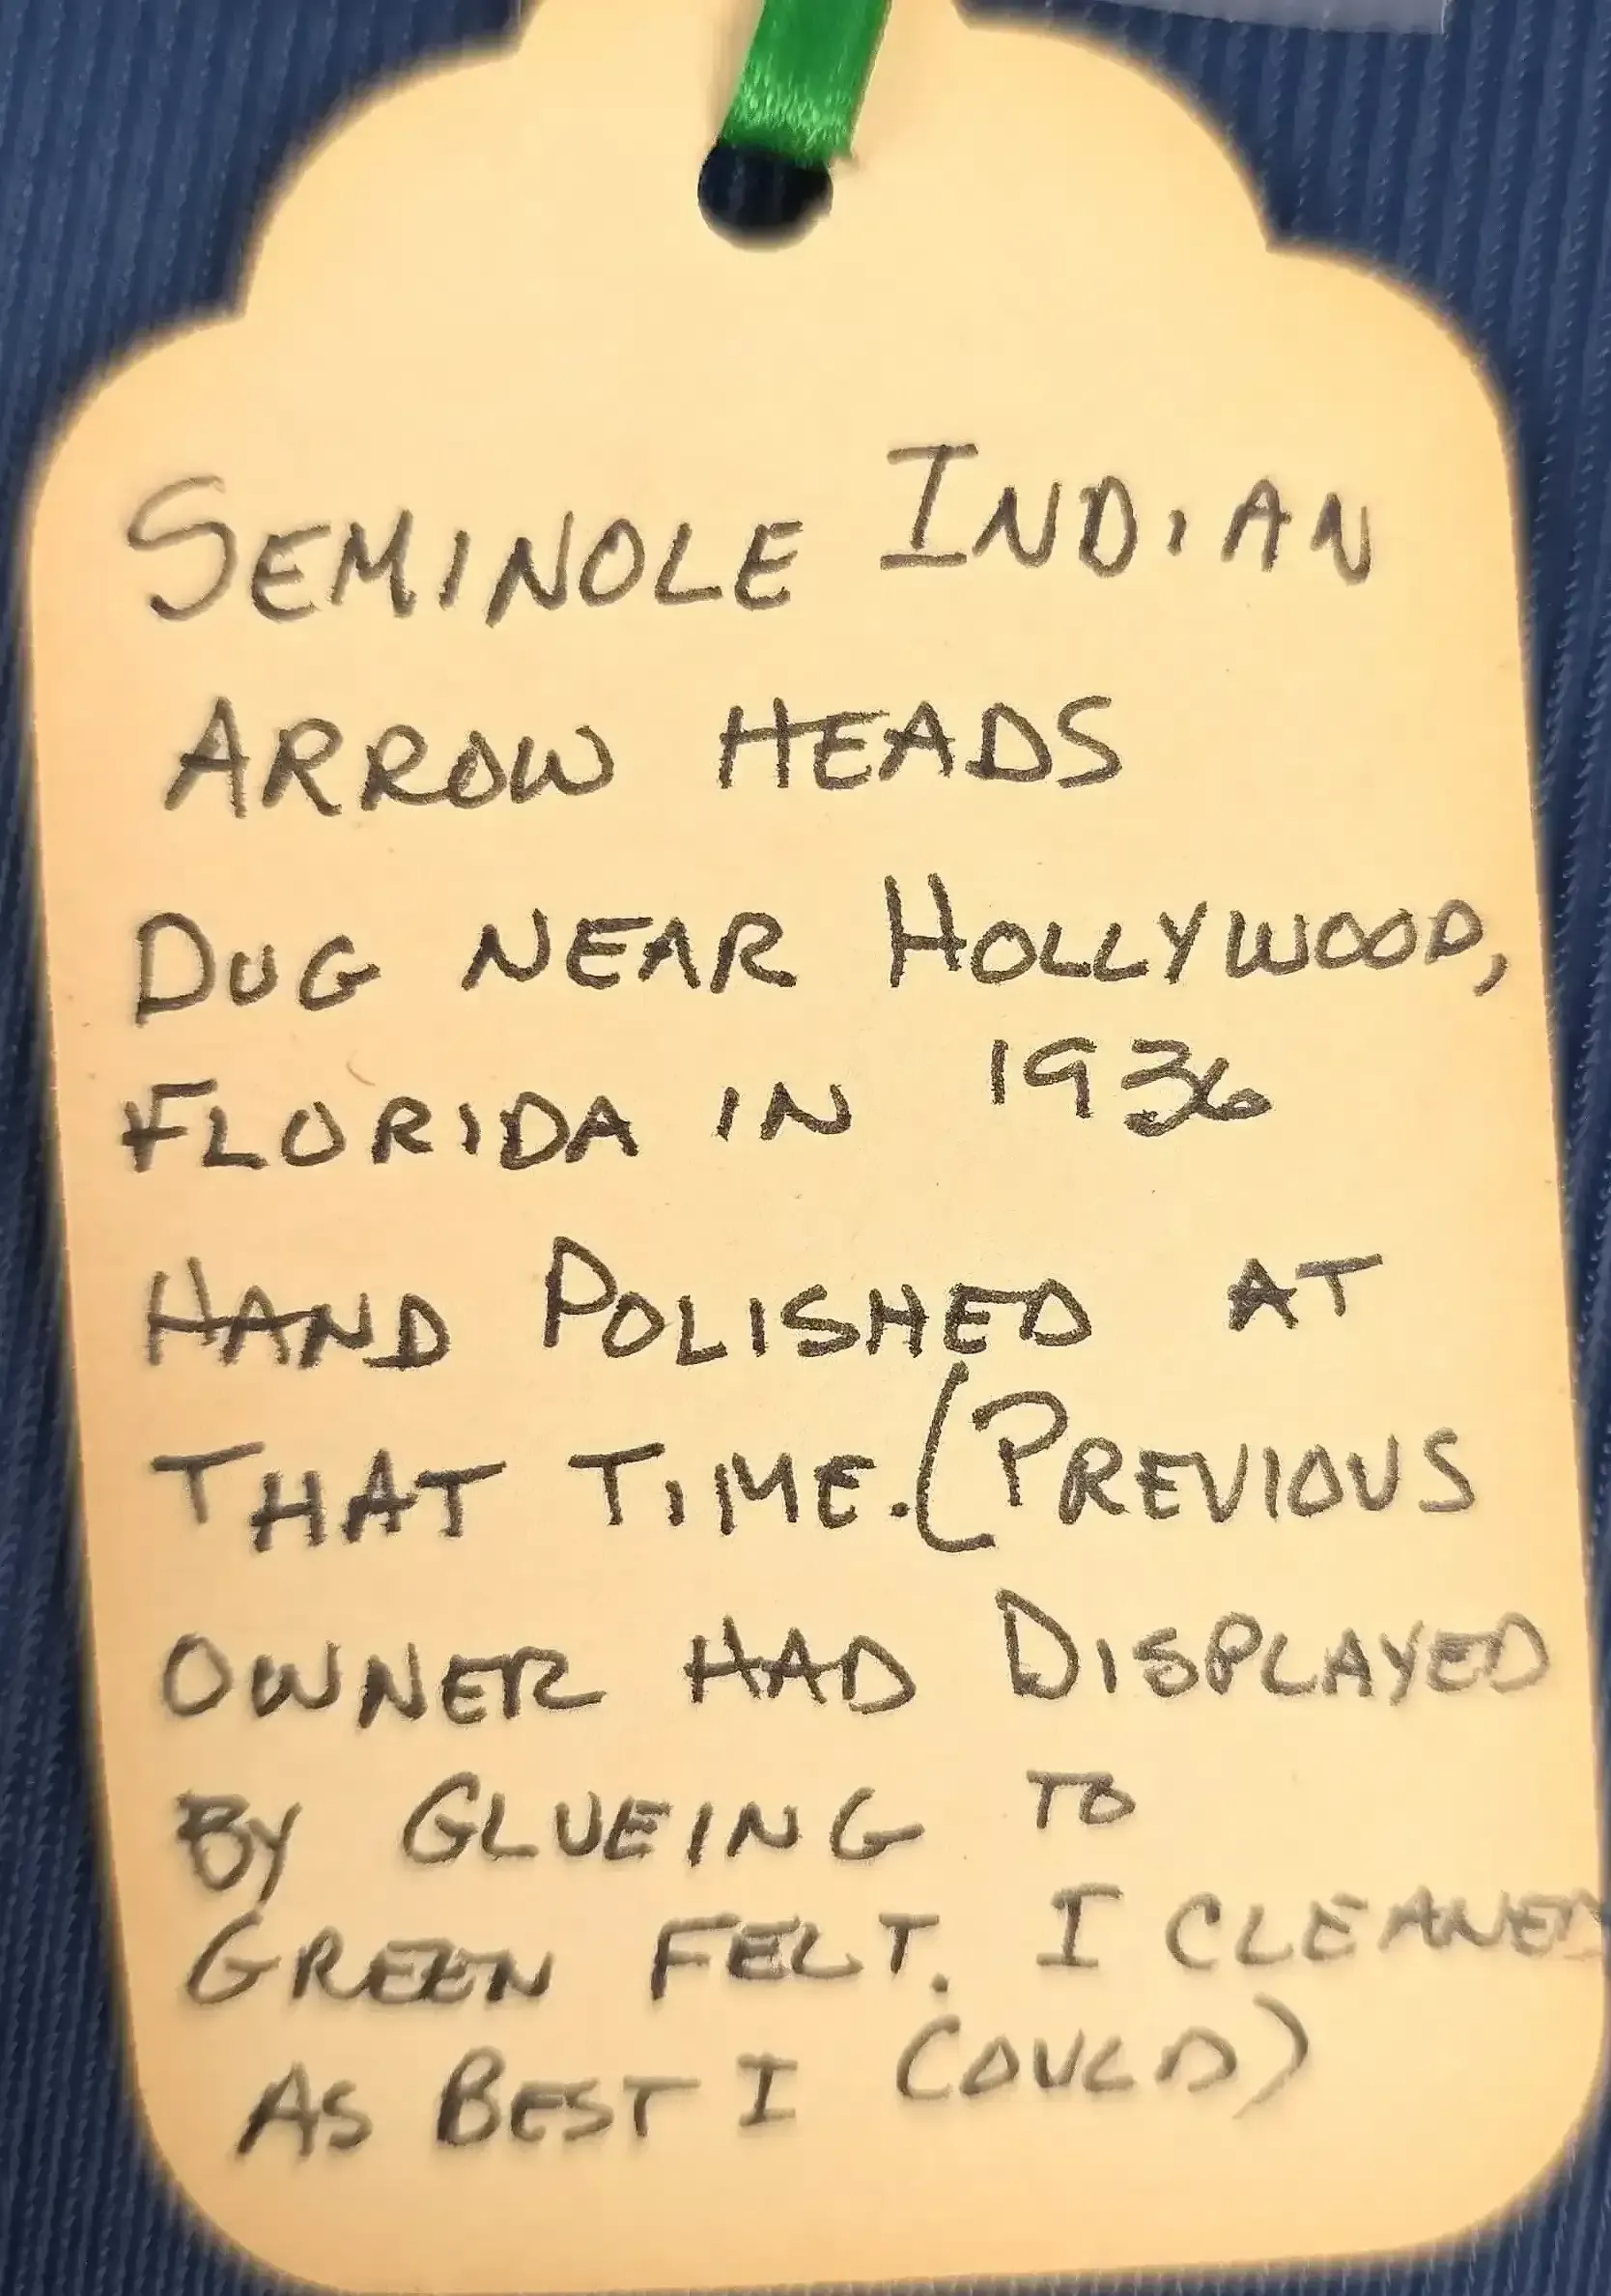 SEMINOLE INDIAN
ARROW HEADS
DUG NEAR HOLLYWOOD,
FLORIDA IN 1936
HAND POLISHED AT
THAT TIME. (PREVIOUS
OWNER HAD DISPLAYED
BY GLUEING TO
GREEN FELT. I CLEANED
AS BEST I COULD)